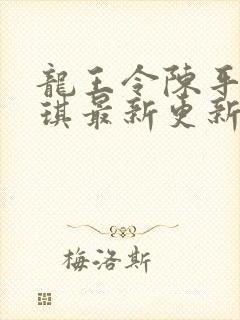 龍王令陳平
琪最新更新
梅洛斯